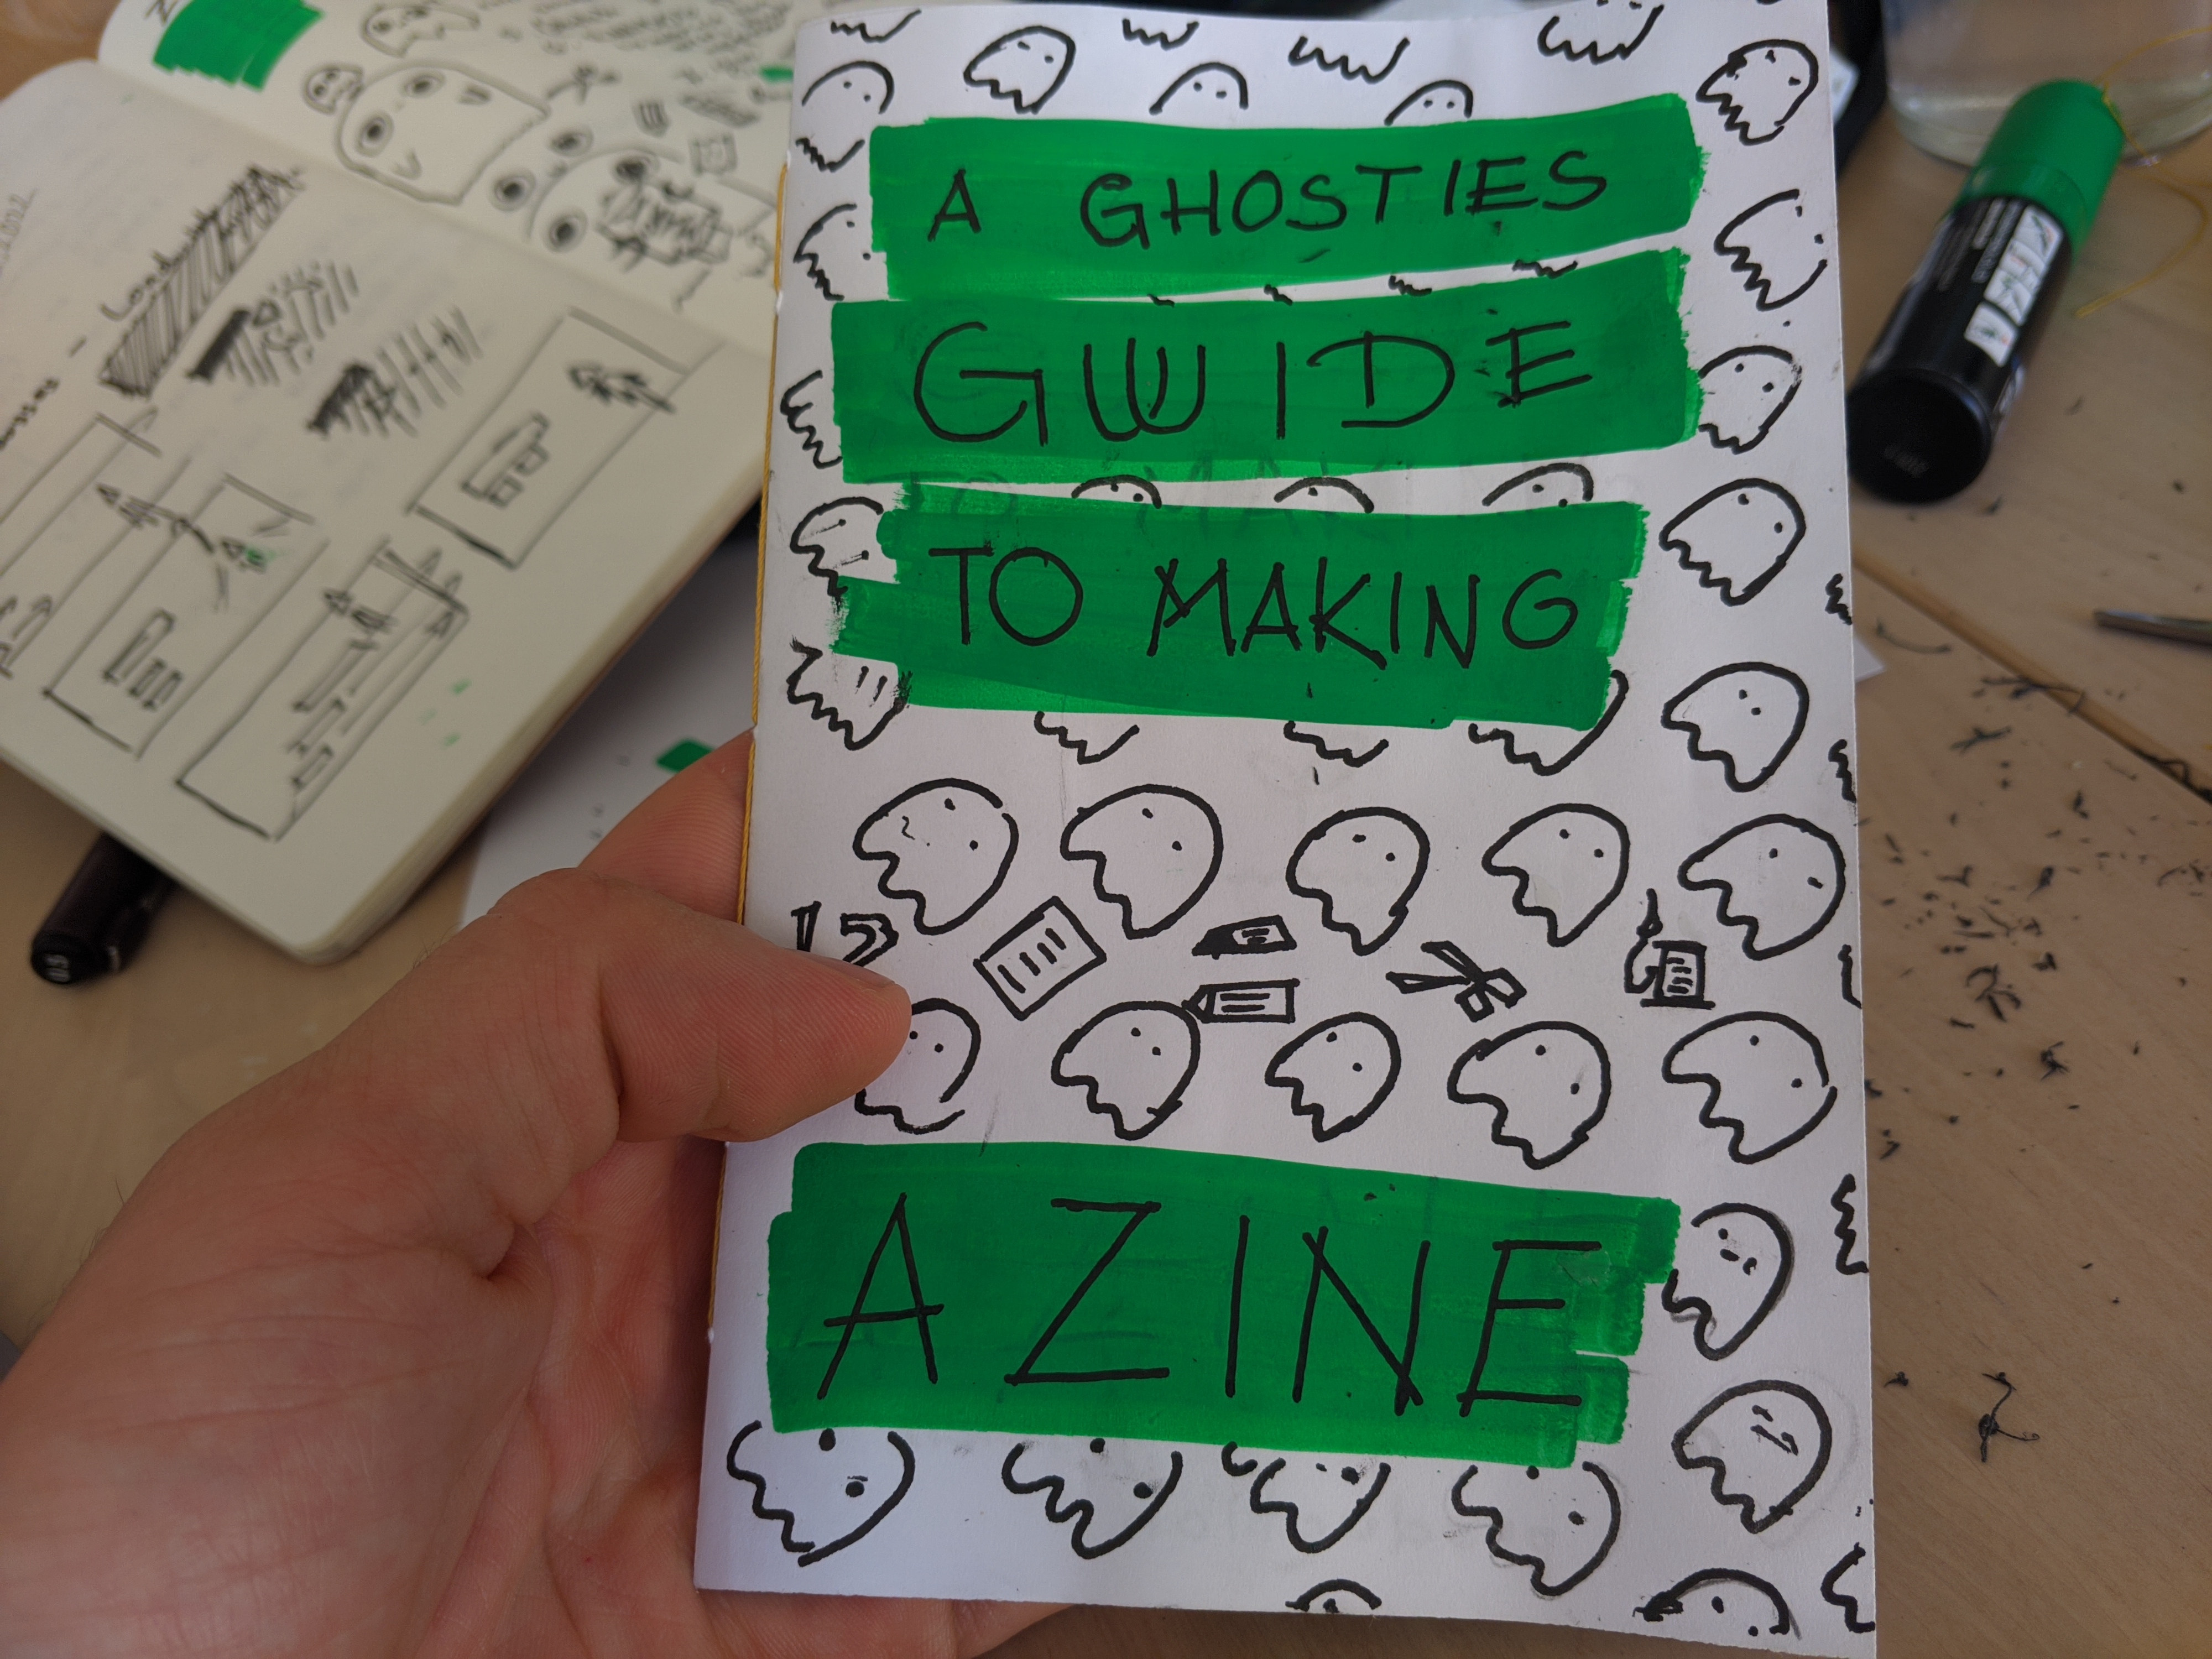 A GHOSTIES
GUIDE
TO MAKING
A ZINE
0.5